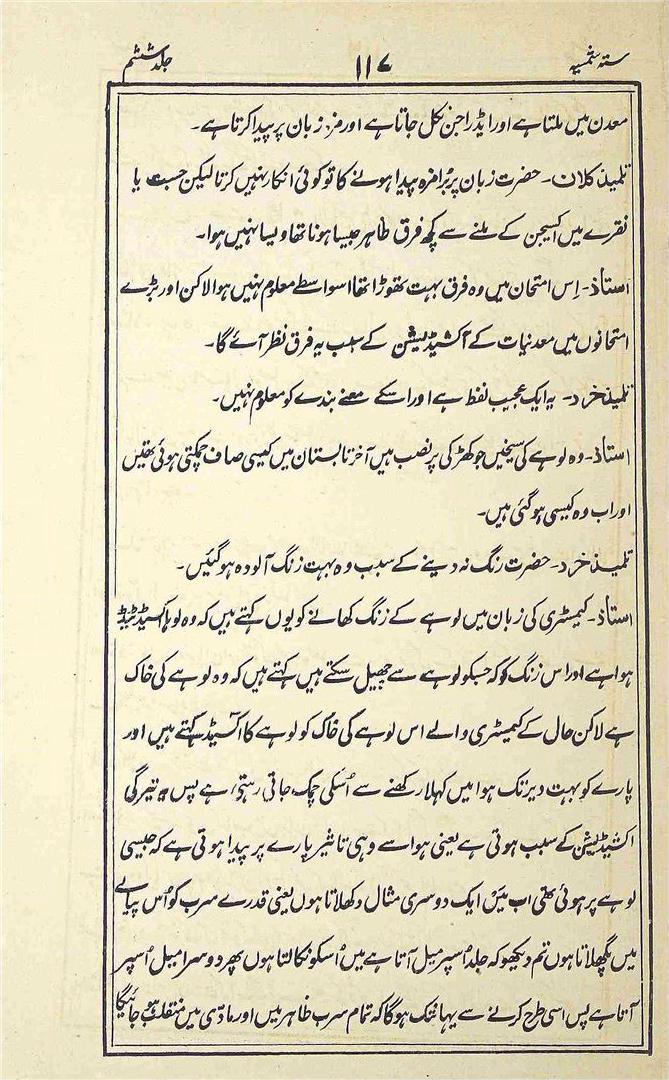 ستہ شمسیہ ۱۱۷ جلد ششم
معدن میں ملتا ہے اور ایڈراجن نکل جاتا ہے اور مزہ زبان پر پیدا کرتا ہے۔
تلمیذ کلان۔ حضرت زبان پر بُرا مزہ پیدا ہونے کا تو کوئی انکار نہیں کرتا لیکن جست یا
نقرے میں اکسیجن کے ملنے سے کچھ فرق ظاہر جیسا ہونا تھا ویسا نہیں ہوا۔
استاذ۔ اِس امتحان میں وہ فرق بہت تھوڑا تھا اسواسطے معلوم نہیں ہوا لاکن اور بڑے
امتحانوں میں معدنیات کے آکشیڈیشن کے سبب یہ فرق نظر آئے گا۔
تلمیذ خرد۔ یہ ایک عجیب لفظ ہے اور اسکے معنے بندے کو معلوم نہیں۔
استاذ۔ وہ لوہے کی سیخیں جو کھڑکی پر نصب ہیں آخر تابستان میں کیسی صاف چمکتی ہوئی تھیں
اور اب وہ کیسی ہو گئی ہیں۔
تلمیذ خرد۔ حضرت رنگ نہ دینے کے سبب وہ بہت زنگ آلودہ ہو گئیں۔
استاذ۔ کیمسٹری کی زبان میں لوہے کے زنگ کھانے کو یوں کہتے ہیں کہ وہ لوہا اکسیڈیٹیڈ
ہوا ہے اور اس زنگ کو کہ جسکو لوہے سے چھیل سکتے ہیں کہتے ہیں کہ وہ لوہے کی خاک
ہے لاکن حال کے کیمسٹری والے اس لوہے کی خاک کو لوہے کا اکسیڈ کہتے ہیں اور
پارے کو بہت دیر تک ہوا میں کہلا رکھنے سے اُسکی چمک جاتی رہتی ہے پس یہ تیرگی
اکشیڈیشن کے سبب ہوتی ہے یعنی ہوا سے وہی تاثیر پارے پر پیدا ہوتی ہے کہ جیسی
لوہے پر ہوئی تھی اب میں ایک دوسری مثال دکھلاتا ہوں یعنی قدرے سرب کو اُس پیالے
میں پگھلاتا ہوں تم دیکھو کہ جلد اُسپر میل آتا ہے میں اُسکو نکالتا ہوں پھر دوسرا میل اُسپر
آتا ہے پس اسی طرح کرنے سے یہانتک ہوگا کہ تمام سرب ظاہر میں اور مادّی میں منقلب ہو جائیگا